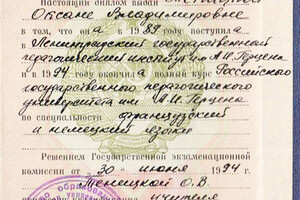 Настоящий диплом выдан
Оксане Владимировне
в том, что она в 1989 году поступила
в Ленинградский государственный
педагогический институт им. А.И. Герцена
и в 1994 году окончила полный курс Российского
государственного педагогического
университета им. А.И. Герцена
по специальности французский
и немецкий языки
Решением Государственной экзаменационной
комиссии от „30" июня 1994 г.
Менецкой О.В.
учителя